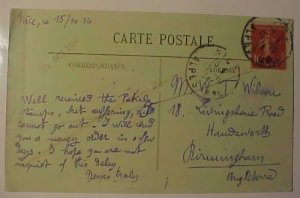 Nice, le 15/10 14
CARTE POSTALE
CORRESPONDANCE
Well received the
stamps, but
cannot go out. I will send
you a money order in a few
days. I hope you are not
of this delay.
Yours truly
M. W. J. Wilson
18, Livingstone Road
Handsworth
Birmingham
Angleterre